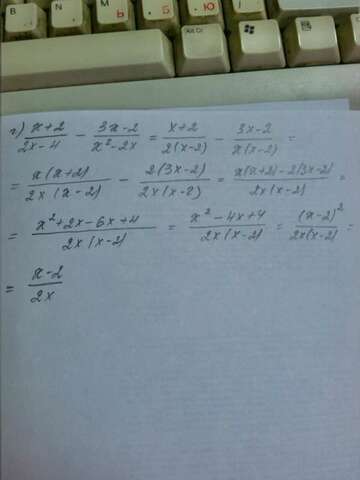 B N M Б Ю
Alt Ctrl
г) \frac{x+2}{2x-4} - \frac{3x-2}{x^2-2x} = \frac{x+2}{2(x-2)} - \frac{3x-2}{x(x-2)} =
= \frac{x(x+2)}{2x(x-2)} - \frac{2(3x-2)}{2x(x-2)} = \frac{x(x+2)-2(3x-2)}{2x(x-2)} =
= \frac{x^2+2x-6x+4}{2x(x-2)} = \frac{x^2-4x+4}{2x(x-2)} = \frac{(x-2)^2}{2x(x-2)} =
= \frac{x-2}{2x}